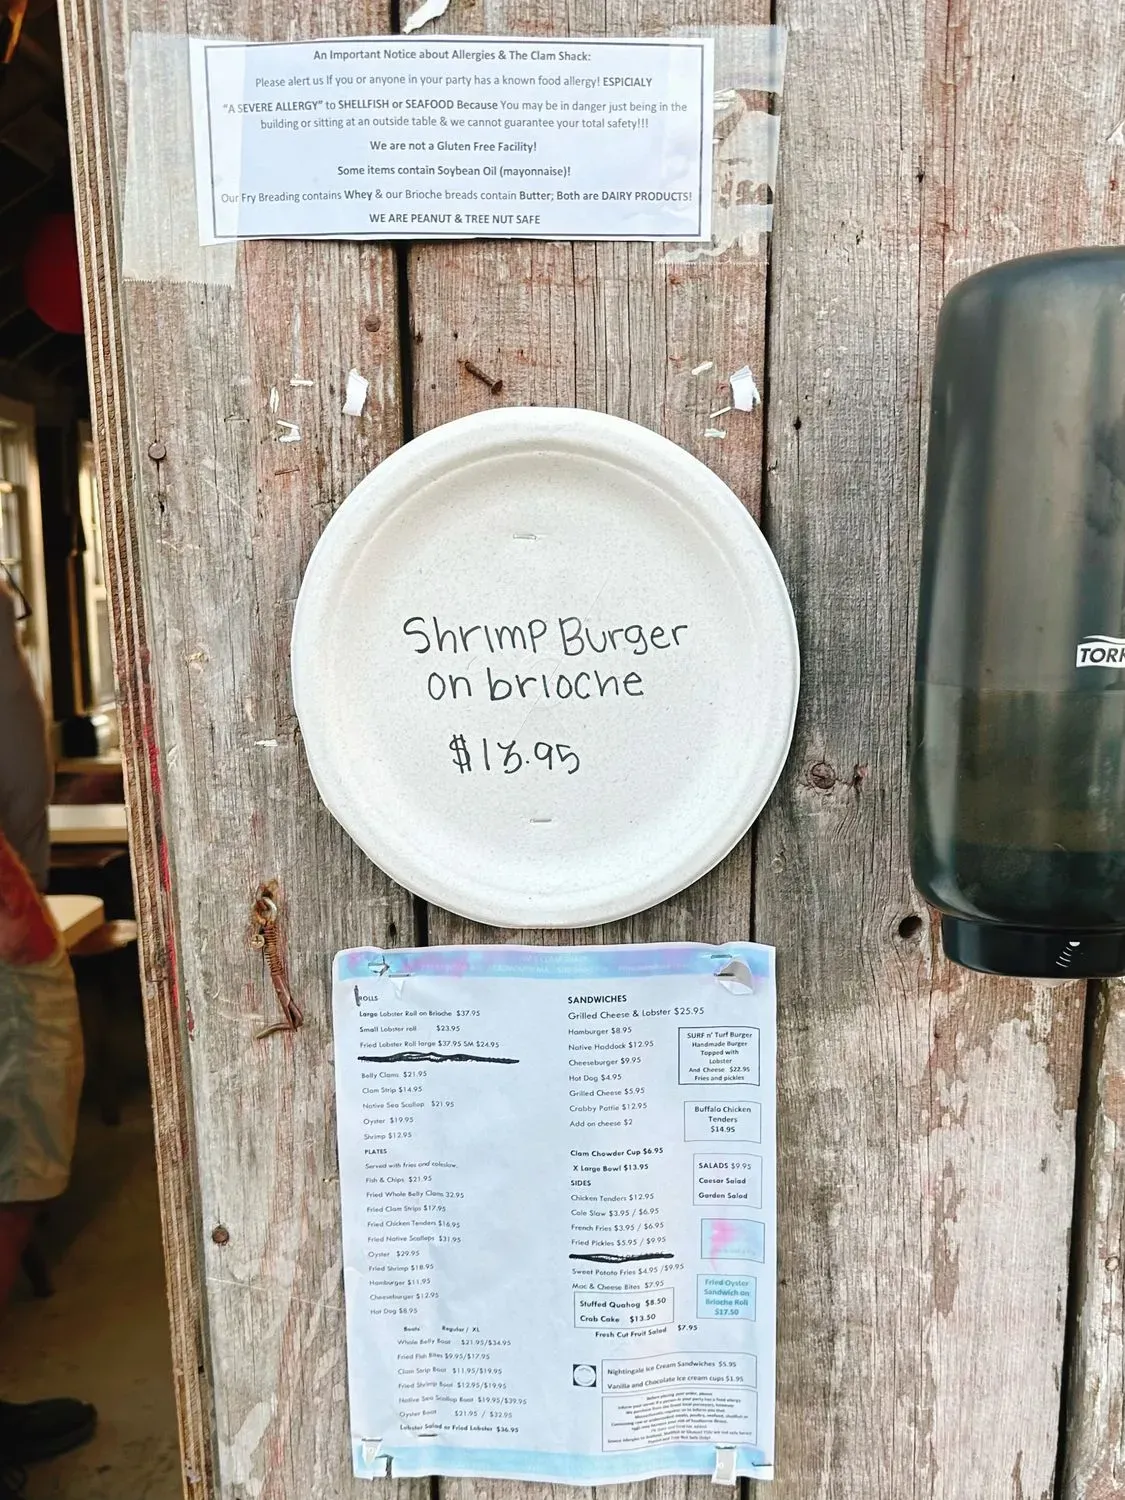 An Important Notice about Allergies & The Clam Shack:
Please alert us If you or anyone in your party has a known food allergy! ESPICIALY
"A SEVERE ALLERGY" to SHELLFISH or SEAFOOD Because You may be in danger just being in the
building or sitting at an outside table & we cannot guarantee your total safety!!!
We are not a Gluten Free Facility!
Some items contain Soybean Oil (mayonnaise)!
Our Fry Breading contains Whey & our Brioche breads contain Butter; Both are DAIRY PRODUCTS!
WE ARE PEANUT & TREE NUT SAFE
Shrimp Burger
on brioche
TORK
ROLLS
Large Lobster Roll on Brioche $37.95
Small Lobster roll $23.95
Fried Lobster Roll large $37.95 SM $24.95
Belly Clams $21.95
Clam Strip $14.95
Native Sea Scallop $21.95
Oyster $19.95
Shrimp $12.95
PLATES
Served with fries and coleslaw.
Fish & Chips $21.95
Fried Whole Belly Clams 32.95
Fried Clam Strips $17.95
Fried Chicken Tenders $16.95
Fried Native Scallops $31.95
Oyster $29.95
Fried Shrimp $18.95
Hamburger $11.95
Cheeseburger $12.95
Hot Dog $8.95
Boats Regular / XL
Whole Belly Boat $21.95/$34.95
Fried Fish Bites $9.95/$17.95
Clam Strip Boat $11.95/$19.95
Fried Shrimp Boat $12.95/$19.95
Native Sea Scallop Boat $19.95/$39.95
Oyster Boat $21.95 / $32.95
Lobster Salad or Fried Lobster $36.95
SANDWICHES
Grilled Cheese & Lobster $25.95
Hamburger $8.95
Native Haddock $12.95
Cheeseburger $9.95
Hot Dog $4.95
Grilled Cheese $5.95
Crabby Pattie $12.95
Add on cheese $2
Clam Chowder Cup $6.95
X Large Bowl $13.95
SIDES
Chicken Tenders $12.95
Cole Slaw $3.95 / $6.95
French Fries $3.95 / $6.95
Fried Pickles $5.95 / $9.95
Sweet Potato Fries $4.95 /$9.95
Mac & Cheese Bites $7.95
Stuffed Quahog $8.50
Crab Cake $13.50
Fresh Cut Fruit Salad $7.95
SURF n' Turf Burger
Handmade Burger
Topped with
Lobster
And Cheese $22.95
Fries and pickles
Buffalo Chicken
Tenders
$14.95
SALADS $9.95
Caesar Salad
Garden Salad
Fried Oyster
Sandwich on
Brioche Roll
$17.50
Nightingale Ice Cream Sandwiches $5.95
Vanilla and Chocolate Ice cream cups $1.95